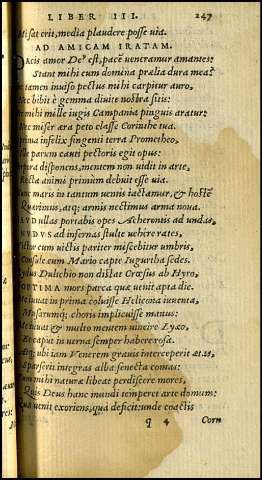 LIBER III. 247
Mi sat erit, media plaudere posse uia.
AD AMICAM IRATAM.
Pacis amor De⁹ est, pacē ueneramur amantes:
Stant mihi cum domina prælia dura mea?
tamen inuiso pectus mihi carpitur auro,
Nec bibit è gemma diuite nostra sitis:
mihi mille iugis Campania pinguis aratur:
Nec miser æra peto classe Corinthe tua.
prima infelix fingenti terra Prometheo,
Ille parum cauti pectoris egit opus:
disponens, mentem non uidit in arte,
Recta animi primùm debuit esse uia.
maris in tantum uentis iactamur, & hostē
Quærimus, atq; armis nectimus arma noua.
HAVD ullas portabis opes Acherontis ad undas,
NVDVS ad infernas stulte uehere rates,
Victor cum uictis pariter miscebitur umbris,
Consule cum Mario capte Iugurtha sedes.
Lydus Dulichio non distat Crœsus ab Hyro,
OPTIMA mors parca quæ uenit apta die.
Me iuuat in prima coluisse Helicona iuuenta,
Musarumq; choris implicuisse manus:
Me iuuat & multo mentem uincire Lyæo,
Et caput in uerna semper habere rosa.
Atq; ubi iam Venerem grauis interceperit ætas,
Sparserit integras alba senecta comas:
Tum mihi naturæ libeat perdiscere mores,
Quis Deus hanc mundi temperet arte domum:
Qua uenit exoriens, qua deficit: unde coactis
q 4 Corn